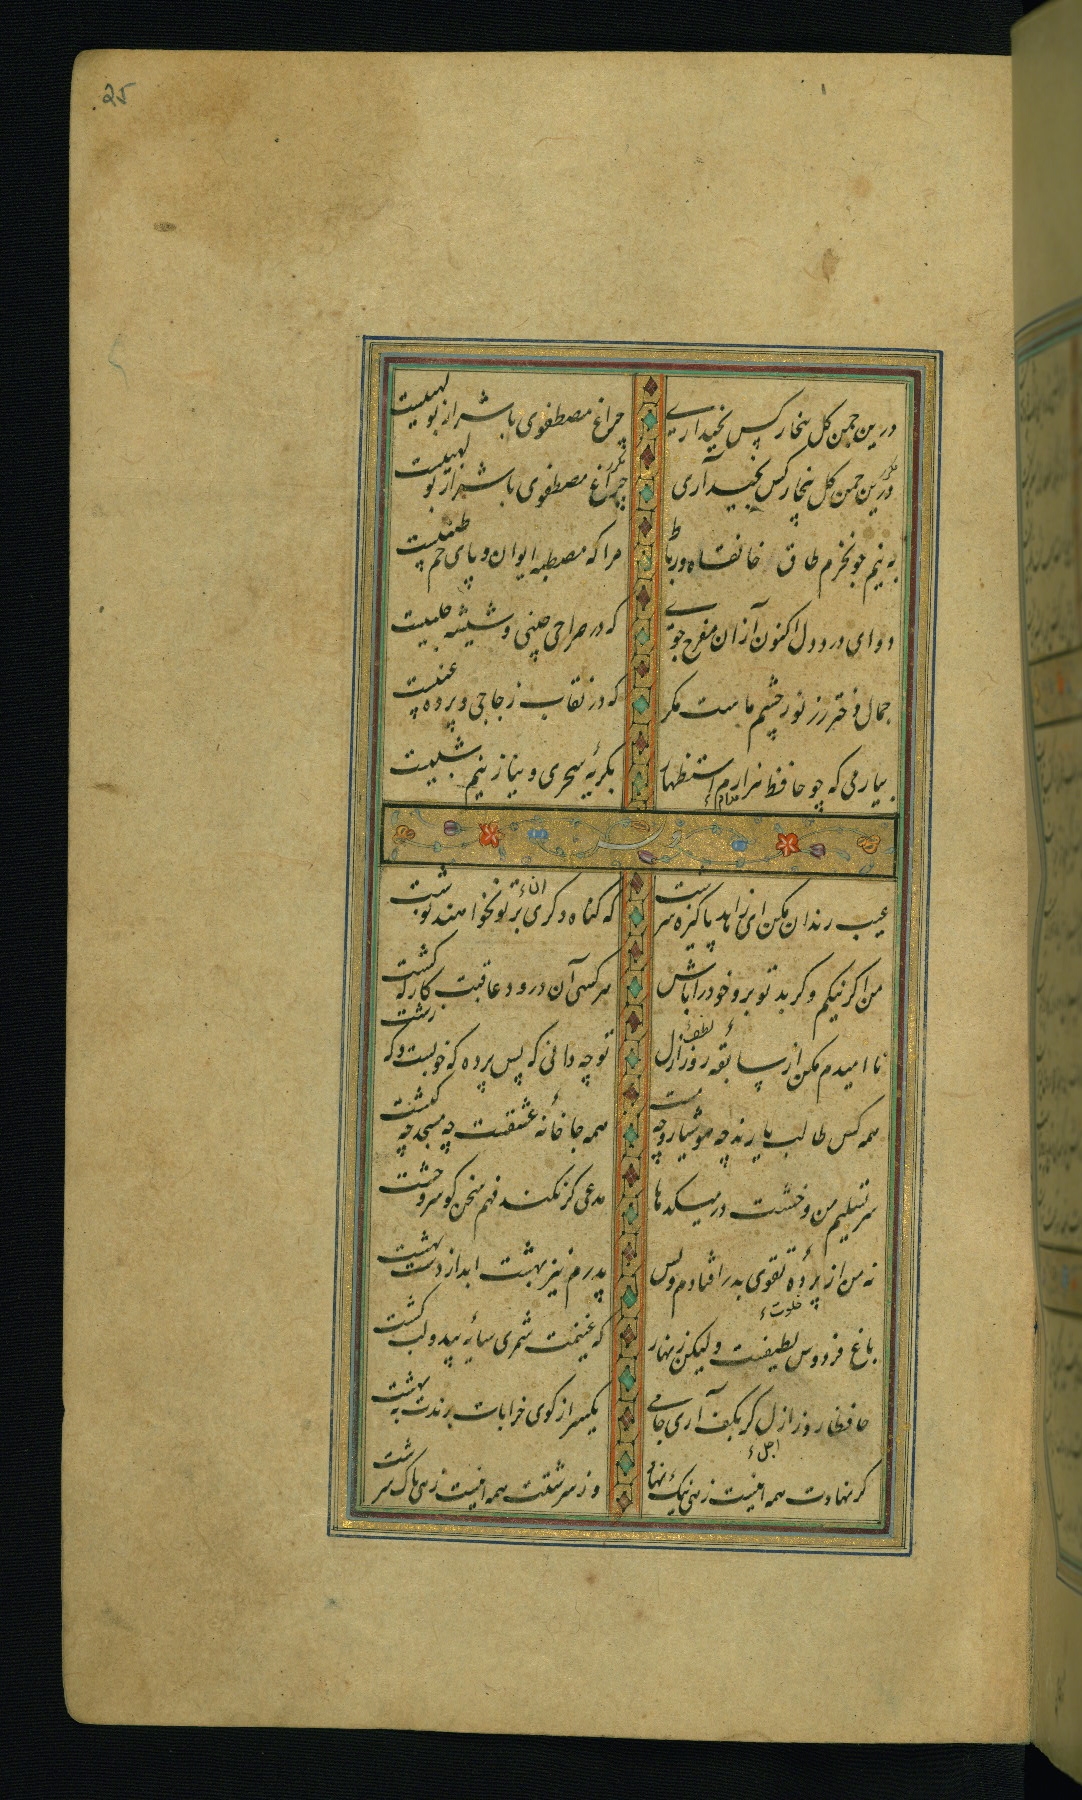 25
درین چمن گل بیخار کس نچید آری چراغ مصطفوی با شرار بولهبیست
مکرر
درین چمن گل بیخار کس نچید آری چراغ مصطفوی با شرار بولهبیست
مکرر
به نیم جو نخرم طاق خانقاه و رباط مرا که مصطبه ایوان و پای خم طنبیست
دوای درد دل اکنون از آن مفرح جوی که در صراحی چینی و شیشه حلبیست
جمال دختر رز نور چشم ماست مگر که در نقاب زجاجی و پرده عنبیست
بیار می که چو حافظ هزارم استظهار بگریه سحری و نیاز نیم شبیست
مدام
عیب رندان مکن ای زاهد پاکیزه سرشت که گناه دگری بر تو نخواهند نوشت
من اگر نیکم و گر بد تو برو خود را باش هر کسی آن درود عاقبت کار که کشت
نا امیدم مکن از سابقه روز ازل تو چه دانی که پس پرده که خوبست و که زشت
لطف
همه کس طالب یارند چه هوشیار و چه مست همه جا خانه عشقست چه مسجد چه کنشت
سر تسلیم من و خشت در میکدها مدعی گر نکند فهم سخن گو سر و خشت
نه من از پرده تقوی بدر افتادم و بس پدرم نیز بهشت ابد از دست بهشت
خلوت
باغ فردوس لطیفست ولیکن زنهار که غنیمت شمری سایه بید و لب کشت
حافظا روز ازل گر بکف آری جامی یکسر از کوی خرابات برندت به بهشت
اجل
گر نهادت همه اینست زهی نیک نهاد ور سرشتت همه اینست زهی پاک سرشت